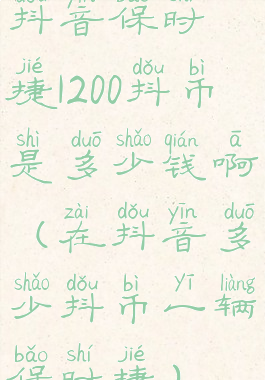 dǒu yīn bǎo shí
抖音保时
jié dǒu bì
捷1200抖币
shì duō shǎo qián ā
是多少钱啊
zài dǒu yīn duō
（在抖音多
shǎo dǒu bì yī liàng
少抖币一辆
bǎo shí jié
保时捷）